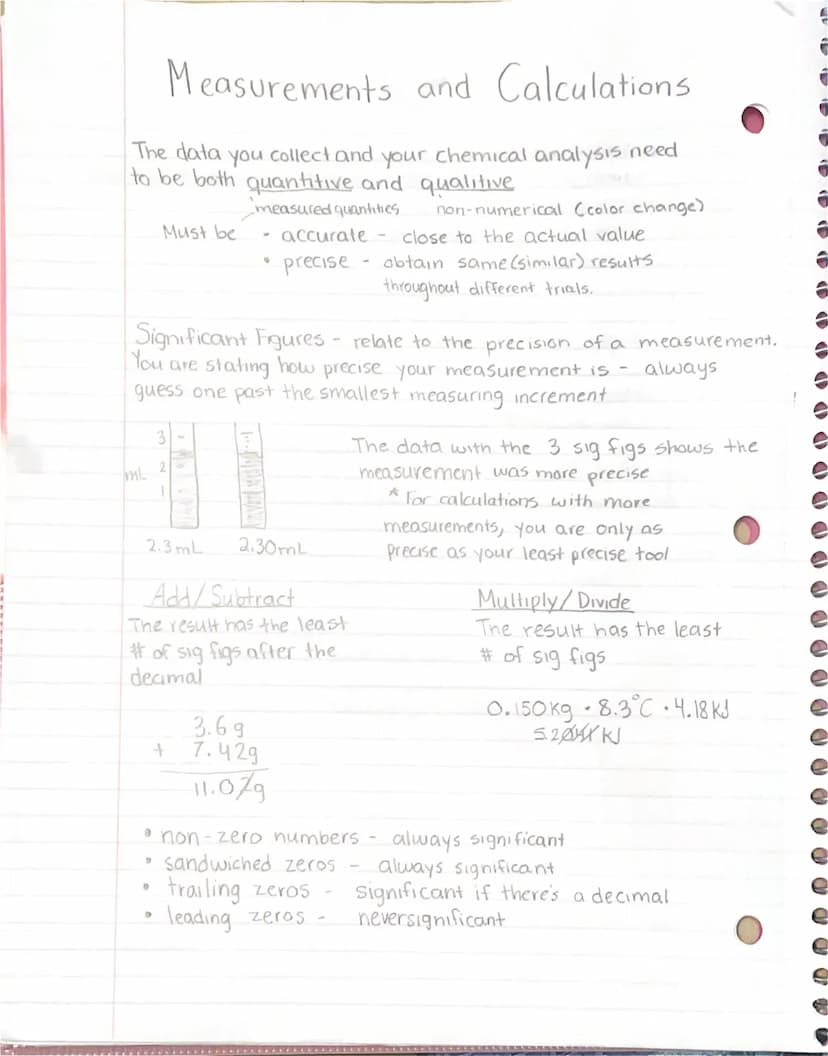 Measurements and Calculations
The data you collect and your chemical analysis need
to be both quantitive and qualitive
measured quantities non-numerical (color change)
Must be - accurate - close to the actual value
• precise - obtain same (similar) results
throughout different trials.
Significant Figures - relate to the precision of a measurement.
You are stating how precise your measurement is - always
guess one past the smallest measuring increment
3
mL 2
1
2.3mL 2.30mL
The data with the 3 sig figs shows the
measurement was more precise
* For calculations with more
measurements, you are only as
precise as your least precise tool
Add/Subtract
The result has the least
# of sig figs after the
decimal
3.6g
+ 7.42g
11.02g
Multiply/Divide
The result has the least
# of sig figs
0.150kg • 8.3°C • 4.18KJ
5.2 KJ
• non-zero numbers - always significant
• sandwiched zeros - always significant
• trailing zeros - significant if there's a decimal
• leading zeros - never significant